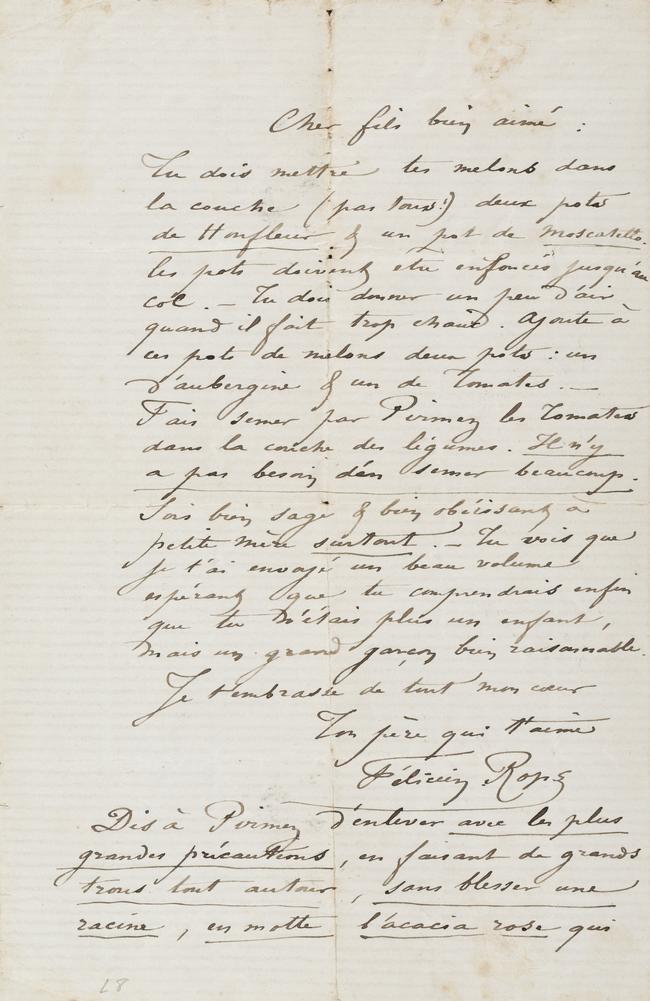 Cher fils bien aimé :
Tu dois mettre tes melons dans
la couche (pas tous!) deux pots
de Honfleur & un pot de Moscatello.
les pots doivent être enfoncés jusqu'au
col. – Tu dois donner un peu d'air
quand il fait trop chaud. Ajoute à
ces pots de melons deux pots : un
d'aubergine & un de Tomates. –
Fais semer par Pirmez les Tomates
dans la couche des légumes. Il n'y
a pas besoin d'en semer beaucoup.
Sois bien sage & bien obéissant à
petite mère surtout. – Tu vois que
je t'ai envoyé un beau volume
espérant que tu comprendrais enfin
que tu n'étais plus un enfant,
mais un grand garçon bien raisonnable.
Je t'embrasse de tout mon cœur
Ton père qui t'aime
Félicien Rops
Dis à Pirmez d'enlever avec les plus
grandes précautions, en faisant de grands
trous tout autour, sans blesser une
racine, en motte l'acacia rose qui
L8